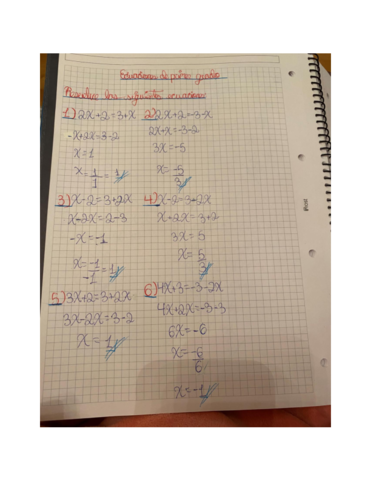 Ecuaciones de primer grado
Resuelve las siguientes ecuaciones
1) 2x+2=3+x
-x+2x=3-2
x=1
x=1/1=1
2) 2x+2=-3-x
2x+x=-3-2
3x=-5
x=-5/3
3) x-2=3+2x
x-2x=2-3
-x=-1
x=-1/-1=1
4) x-2=3+2x
x+2x=3+2
3x=5
x=5/3
5) 3x+2=3+2x
3x-2x=3-2
x=1
6) 4x+3=-3-2x
4x+2x=-3-3
6x=-6
x=-6/6
x=-1